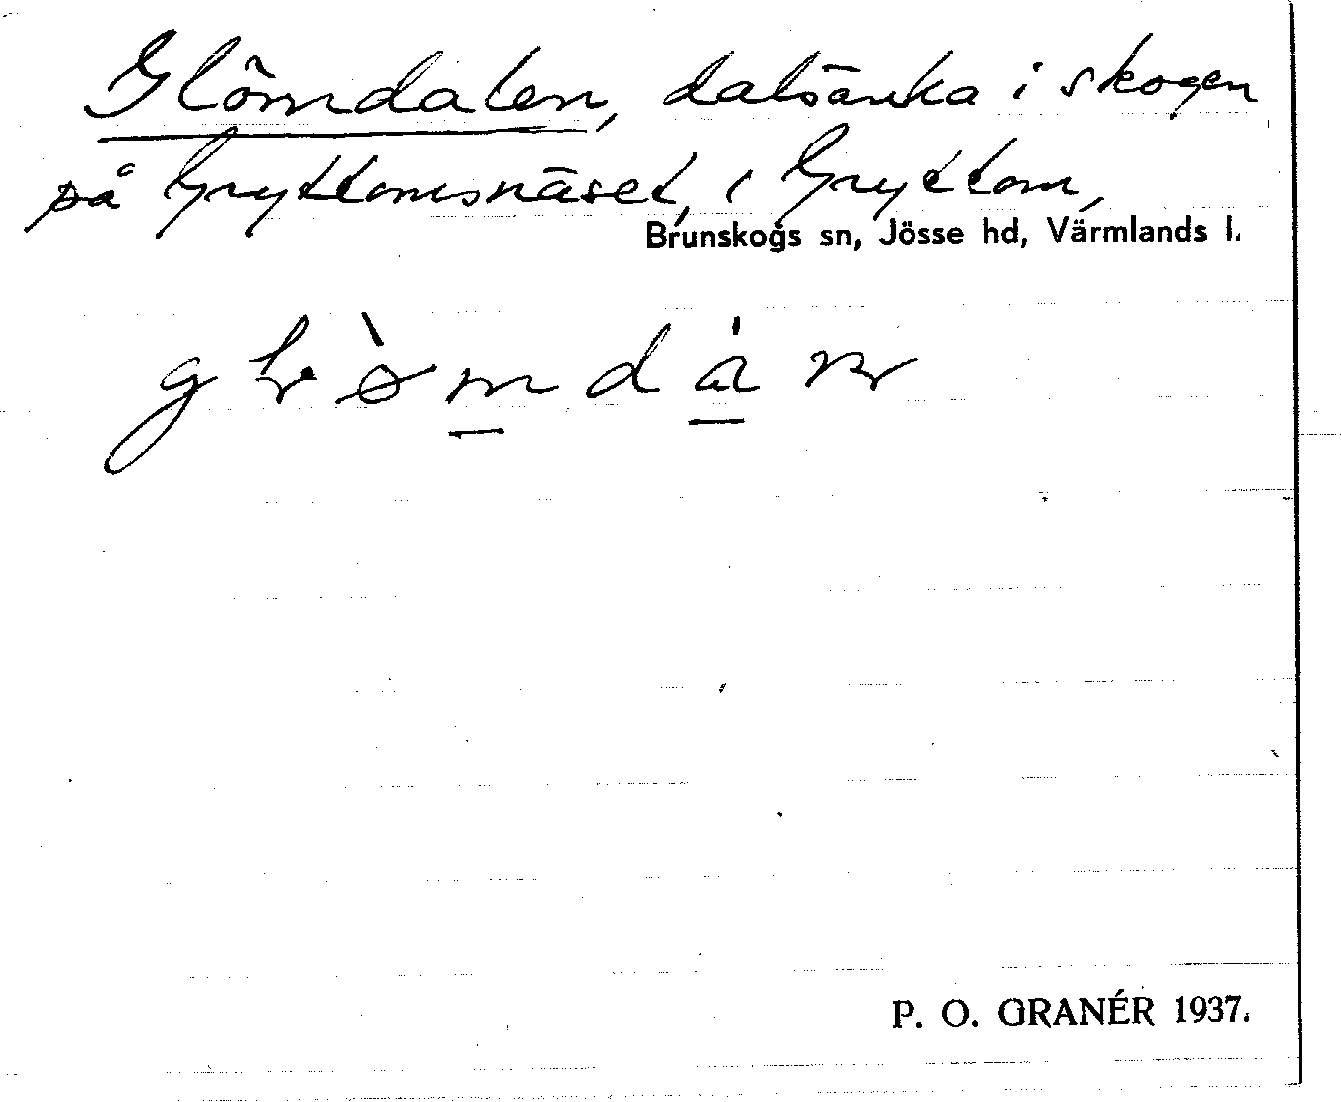 Glömdalen, dalsänka i skogen
på Gryttomsnäset, i Gryttom,
Brunskogs sn, Jösse hd, Värmlands l.
P. O. GRANÉR 1937.